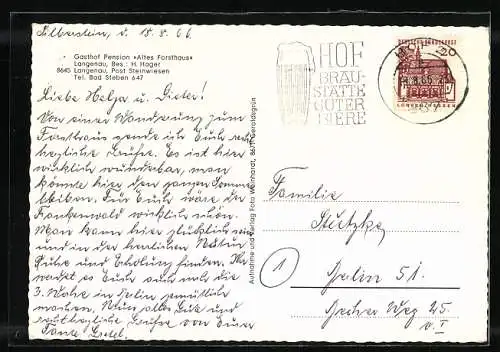 Silberstein, d. 18.8.66
Gasthof Pension «Altes Forsthaus»
Langenau, Bes.: H. Hager
8645 Langenau, Post Steinwiesen
Tel. Bad Steben 647
Liebe Helga u. Dieter!
Von einer Wanderung zum
Forsthaus sende ich Euch recht
herzliche Grüße. Es ist hier
wirklich wunderbar, man
könnte hier den ganzen Sommer
bleiben. Für Euch wäre der
Frankenwald wirklich schön.
Man kann hier glücklich sein
und in der herrlichen Natur
Ruhe und Erholung finden. Ihr
werdet es Euch auch noch die
3. Woche in Berlin gemütlich
machen. Nun alles Liebe und
recht herzliche Grüße von Eurer
Tante Gretel.
Aufnahme und Verlag Foto Weinhardt, Geroldsgrün
HOF
BRAU-
STÄTTE
GUTER
BIERE
DEUTSCHE BUNDESPOST
20
LORSCH/HESSEN
Familie
Stutzke
1
Berlin 51.
Becher Weg 25.
v. I